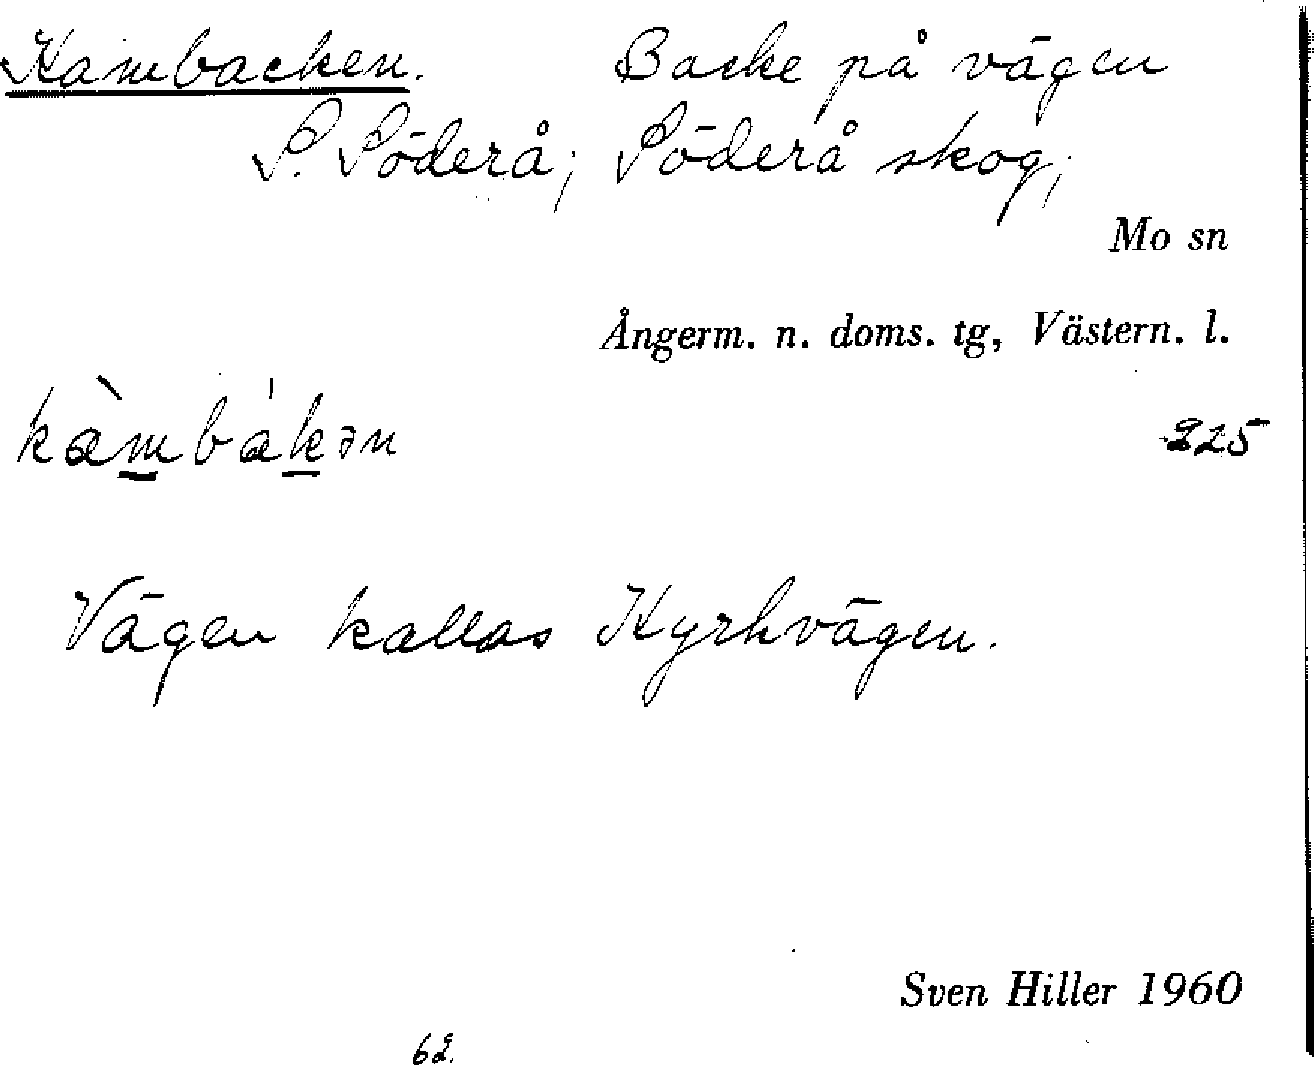 Kambacken. Backe på vägen
S. Söderå; Söderå skog;
Mo sn
Ångerm. n. doms. tg, Västern. l.
kàmbákən 225
Vägen kallas Kyrkvägen.
Sven Hiller 1960
62.